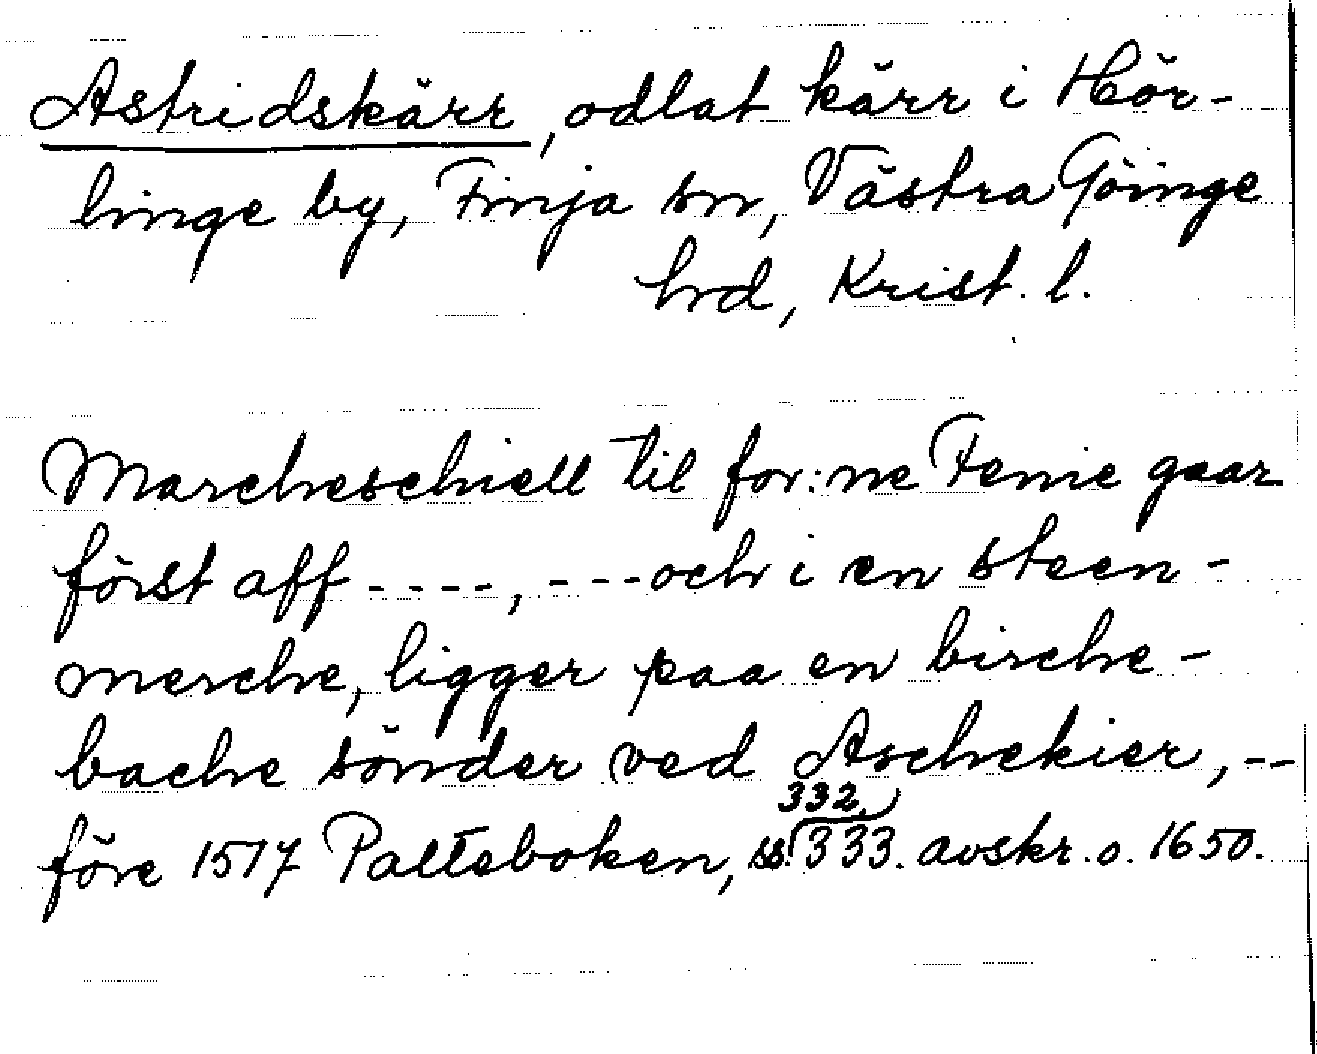 Astridskärr, odlat kärr i Hör-
linge by, Finja sn, Västra Göinge
hrd, Krist. l.
Marcheschiell til for:ne Fenie gaar
först aff ----, ---och i en steen-
merche, ligger paa en birche-
bache sönder ved Aschekier, --
332
före 1517 Palteboken, ss. 333. avskr. o. 1650.